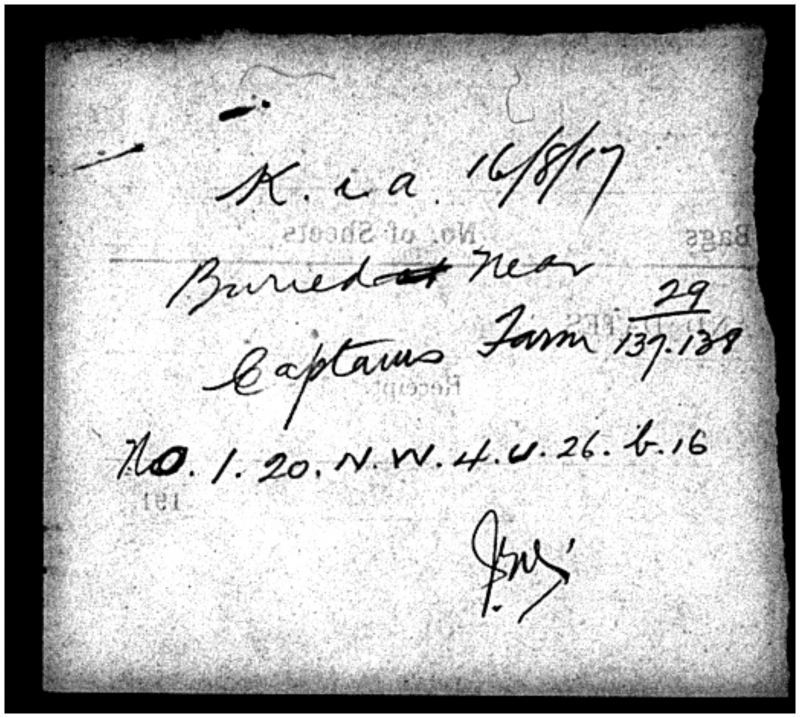 K. i a. 16/8/17
No. of Sheets Bags
Buried at near
Captains Farm 29
137.138
Receipt.
No. 1. 20. N. W. 4. U. 26. b. 16
191